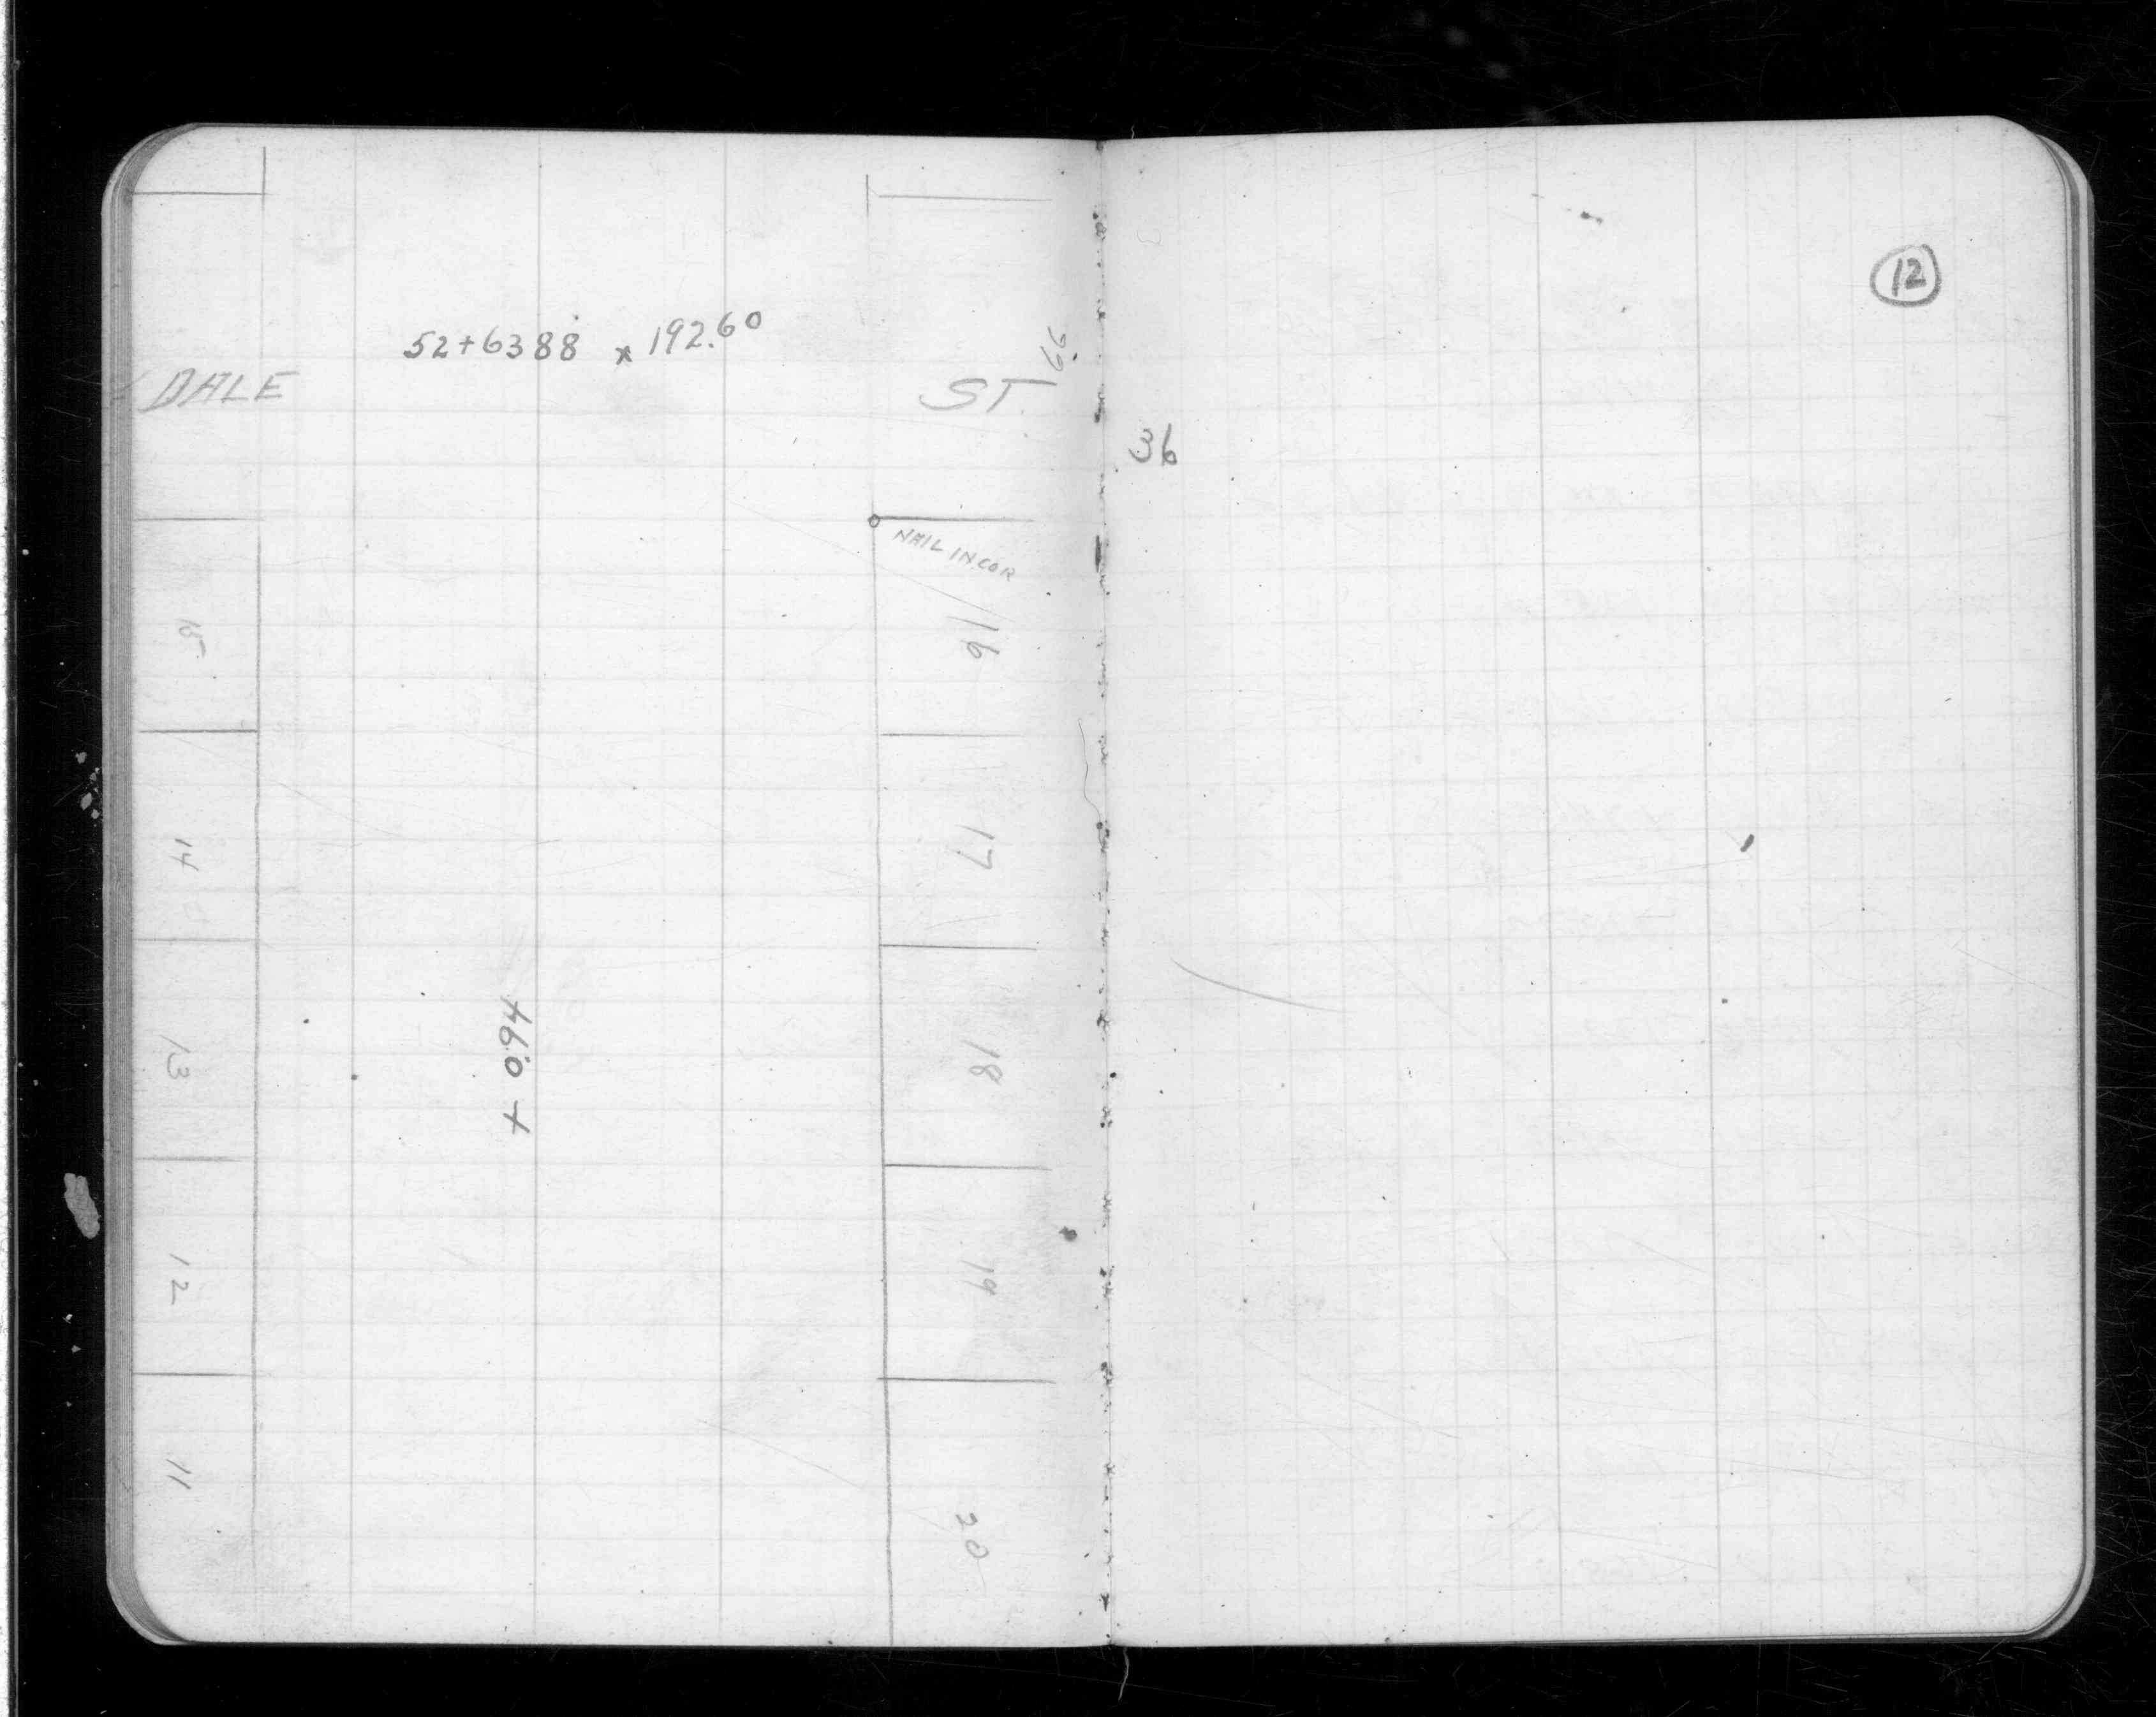 12
52+6388 x 192.60
66.
DALE ST.
36
NAIL IN COR
15 16
14 17
+ 0.94
13 18
12 19
11 20